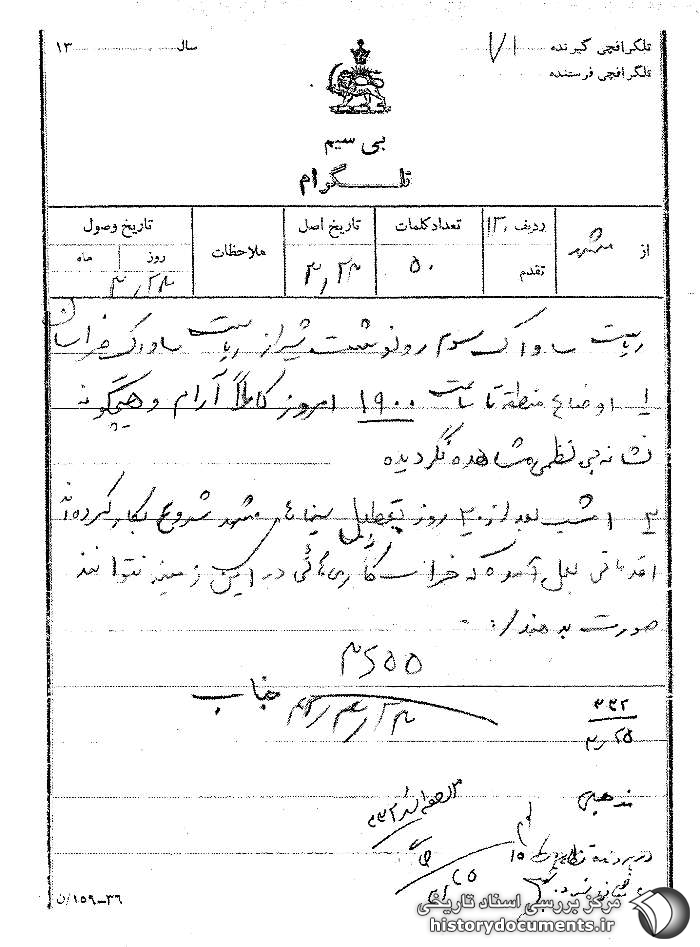 تلگرافچی گیرنده ۷۱ سال ۱۳
تلگرافچی فرستنده
بی سیم
تلگرام
از مشهد
ردیف ۱۳۰
تقدم
تعداد کلمات
۵۰
تاریخ اصل
۳٫۲۴
ملاحظات
تاریخ وصول
روز ماه
۳٫۲۴
ریاست ساواک سوم رونوشت شیراز ریاست ساواک خراسان
۱ اوضاع منطقه تا ساعت ۱۹۰۰ امروز کاملاً آرام و هیچگونه
نشانه بی نظمی مشاهده نگردیده
۲ امشب بعد از ۲۰ روز تعطیل سینماهای مشهد شروع بکار کرده‌اند
اقداماتی بعمل آمده که خراب‌کاری‌هائی در این زمینه نتوانند
صورت بدهند/.
جناب
۳۳۲
۳٫۲۵
مذهبی
ن/۱۵۹-۳۶
مرکز بررسی اسناد تاریخی
historydocuments.ir